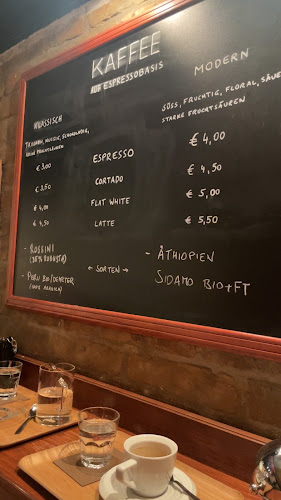 KAFFEE
AUF ESPRESSOBASIS
KLASSISCH
MODERN
SÜSS, FRUCHTIG, FLORAL, SÄUE
STARKE FRUCHTSÄUREN
€ 3,00 ESPRESSO € 4,00
€ 3,50 CORTADO € 4,50
€ 4,00 FLAT WHITE € 5,00
€ 4,50 LATTE € 5,50
- ROSSINI
(20% ROBUSTA)
- PERU BIO/DEMETER
(100% ARABICA)
← SORTEN →
- ÄTHIOPIEN
SIDAMO BIO+FT